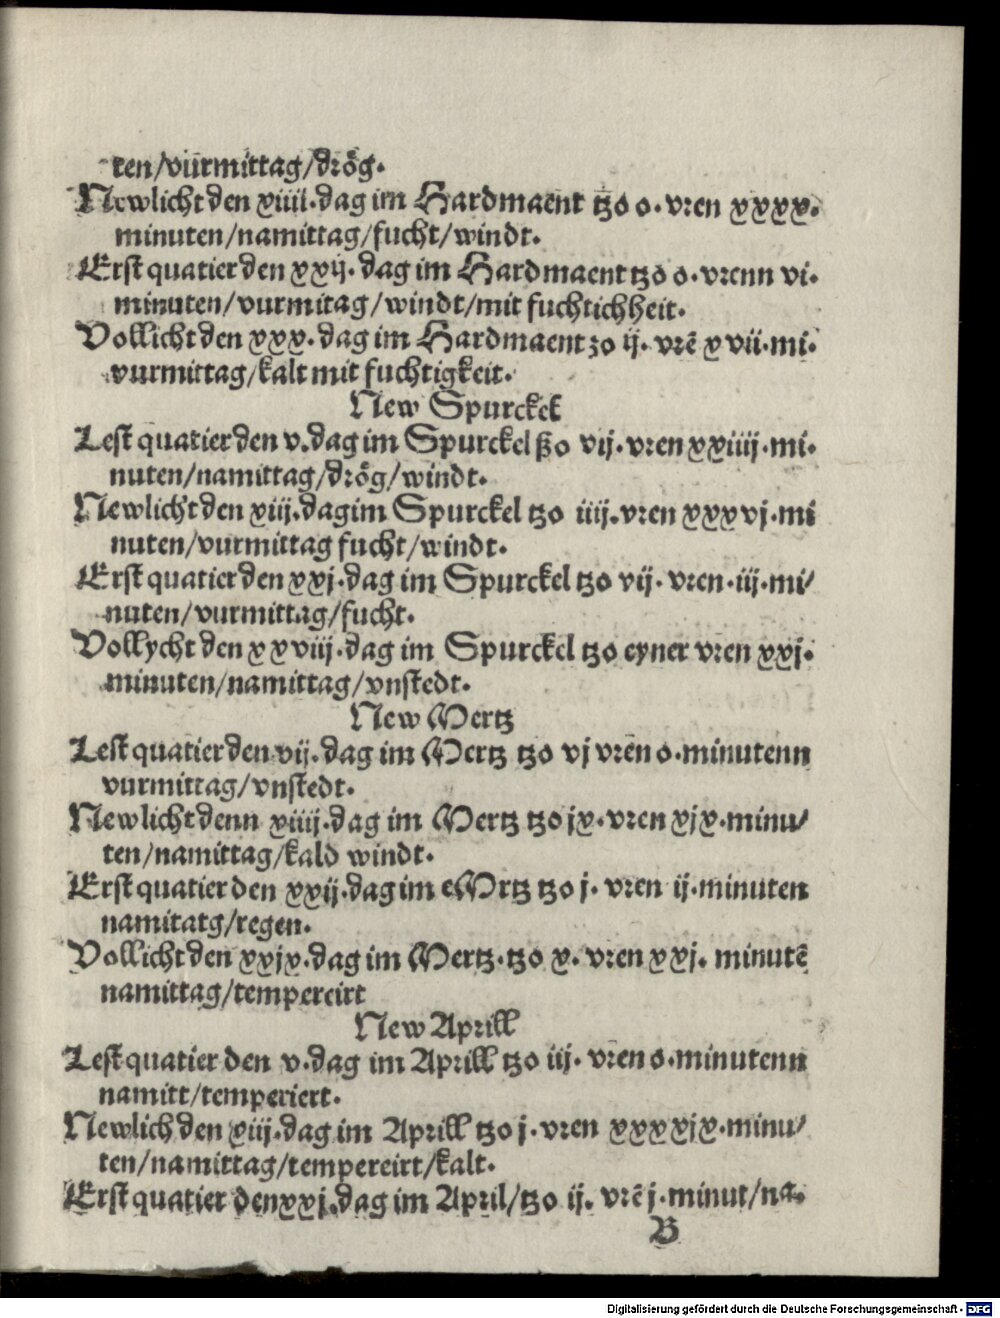 ten/vurmittag/drög.
Newlicht den xiiij.dag im Hardmaent tzo o.vren xxxx.
minuten/namittag/fucht/windt.
Erst quatier den xxij.dag im Hardmaent tzo o.vrenn vi.
minuten/vurmitag/windt/mit fuchtichheit.
Vollicht den xxx.dag im Hardmaent zo ij.vrē xvii.mi.
vurmittag/kalt mit fuchtigkeit.
New Spurckel
Lest quatier den v.dag im Spurckel tzo vij.vren xxiiij.mi.
nuten/namittag/drög/windt.
Newlicht den xiij.dag im Spurckel tzo iiij.vren xxxvj.mi
nuten/vurmittag fucht/windt.
Erst quatier den xxj.dag im Spurckel tzo vij.vren.iij.mi/
nuten/vurmittag/fucht.
Vollycht den xxviij.dag im Spurckel tzo eyner vren xxj.
minuten/namittag/vnstedt.
New Mertz
Lest quatier den vij.dag im Mertz tzo vj vren o.minutenn
vurmittag/vnstedt.
Newlicht denn xiiij.dag im Mertz tzo jx.vren xjx.minu/
ten/namittag/kald windt.
Erst quatier den xxij.dag im eMrtz tzo j.vren ij.minuten
namitatg/regen.
Vollicht den xxjx.dag im Mertz.tzo x.vren xxj.minutē
namittag/tempereirt
New Aprill
Lest quatier den v.dag im Aprill tzo iij.vren o.minutenn
namitt/temperiert.
Newlich den xiij.dag im Aprill tzo j.vren xxxxjx.minu/
ten/namittag/tempereirt/kalt.
Erst quatier den xxj.dag im April/tzo ij.vrē j.minut/na.
B
Digitalisierung gefördert durch die Deutsche Forschungsgemeinschaft - DFG